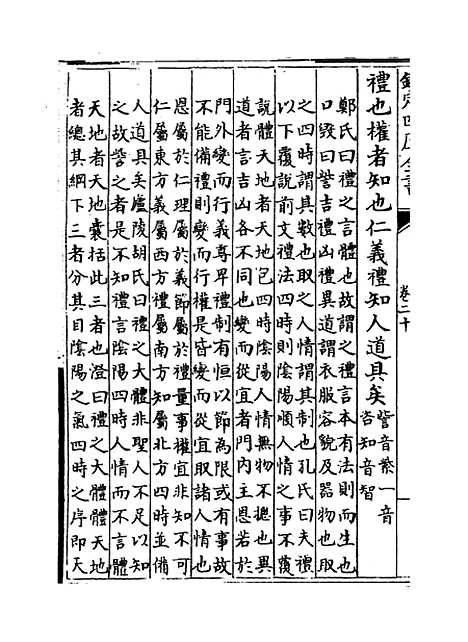 欽定四庫全書
卷二十
禮也權者知也仁義禮知人道具矣
訾音紫一音
咨知音智
鄭氏曰禮之言體也故謂之禮言本有法則而生也
口毀曰訾吉禮凶禮異道謂衣服容貌及器物也取
之四時謂其數也取之人情謂其制也孔氏曰夫禮
以下覆說前文禮法四時則陰陽順人情之事不覆
說體天地者天地包四時陰陽人情無物不摠也異
道者言吉凶各不同也變而從宜者門内主恩若於
門外變而行義尊卑禮制有恒以節為限或有事故
不能備禮則變而行權是皆變而從宜取諸人情也
恩屬於仁理屬於義節屬於禮量事權宜非知不可
仁屬東方義屬西方禮屬南方知屬北方四時並備
人道具矣廬陵胡氏曰禮之大體非聖人不足以知
之故訾之者是不知禮言陰陽四時人情而不言體
天地者天地囊括此三者也澄曰禮之大體體天地
者總其綱下三者分其目陰陽之氣四時之序即天